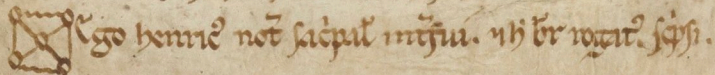 Ego henricꝰ not̄ sac̄ pal̄ int̄fui. ⁊ ħ br̄ rogatꝰ. sc̄psi.